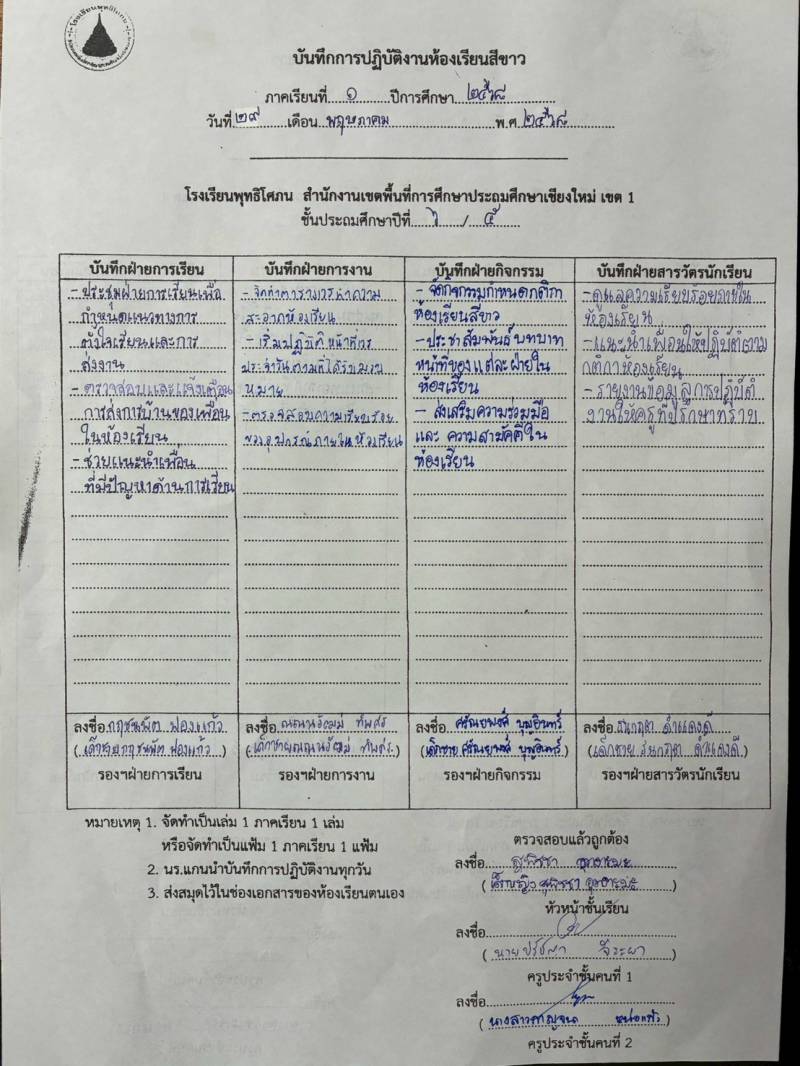 บันทึกการปฏิบัติงานห้องเรียนสีขาว
ภาคเรียนที่ ๑ ปีการศึกษา ๒๕๖๘
วันที่ ๒๙ เดือน พฤษภาคม พ.ศ ๒๕๖๘
โรงเรียนพุทธิโศภน สำนักงานเขตพื้นที่การศึกษาประถมศึกษาเชียงใหม่ เขต 1
ชั้นประถมศึกษาปีที่ ๖ / ๕
บันทึกฝ่ายการเรียน
- ประชุมฝ่ายการเรียนเพื่อ
กำหนดแนวทางการ
ตั้งใจเรียนและการ
ส่งงาน
- ตรวจสอบและแจ้งเตือน
การส่งการบ้านของเพื่อน
ในห้องเรียน
- ช่วยแนะนำเพื่อน
ที่มีปัญหาด้านการเรียน
บันทึกฝ่ายการงาน
- จัดทำตารางเวรทำความ
สะอาดห้องเรียน
- เริ่มปฏิบัติหน้าที่เวร
ประจำวันตามที่ได้รับมอบ
หมาย
- ตรวจสอบความเรียบร้อย
ของอุปกรณ์ภายในห้องเรียน
บันทึกฝ่ายกิจกรรม
- จัดกิจกรรมกำหนดกติกา
ห้องเรียนสีขาว
- ประชาสัมพันธ์บทบาท
หน้าที่ของแต่ละฝ่ายใน
ห้องเรียน
- ส่งเสริมความร่วมมือ
และ ความสามัคคีใน
ห้องเรียน
บันทึกฝ่ายสารวัตรนักเรียน
- ดูแลความเรียบร้อยภายใน
ห้องเรียน
- แนะนำเพื่อนให้ปฏิบัติตาม
กติกาห้องเรียน
- รายงานข้อมูลการปฏิบัติ
งานให้ครูที่ปรึกษาทราบ
ลงชื่อ กฤชนพัต ฟองแก้ว
(เด็กชายกฤชนพัต ฟองแก้ว)
รองฯฝ่ายการเรียน
ลงชื่อ ทัพศร
(เด็กชาย ทัพศร)
รองฯฝ่ายการงาน
ลงชื่อ บุญอินทร์
(เด็กชาย บุญอินทร์)
รองฯฝ่ายกิจกรรม
ลงชื่อ ธนกฤต คำแดงดี
(เด็กชาย ธนกฤต คำแดงดี)
รองฯฝ่ายสารวัตรนักเรียน
หมายเหตุ 1. จัดทำเป็นเล่ม 1 ภาคเรียน 1 เล่ม
หรือจัดทำเป็นแฟ้ม 1 ภาคเรียน 1 แฟ้ม
2. นร.แกนนำบันทึกการปฏิบัติงานทุกวัน
3. ส่งสมุดไว้ในช่องเอกสารของห้องเรียนตนเอง
ตรวจสอบแล้วถูกต้อง
ลงชื่อ สุพิชชา
(เด็กหญิง สุพิชชา )
หัวหน้าชั้นเรียน
ลงชื่อ
(นายปรัชญา )
ครูประจำชั้นคนที่ 1
ลงชื่อ
(นางสาวกาญจนา หน่อแก้ว)
ครูประจำชั้นคนที่ 2